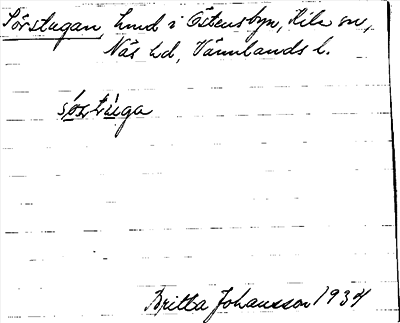 Sörstugan, hmd i Östensbyn, Kila sn,
Näs hd, Värmlands l.
Britta Johansson 1934